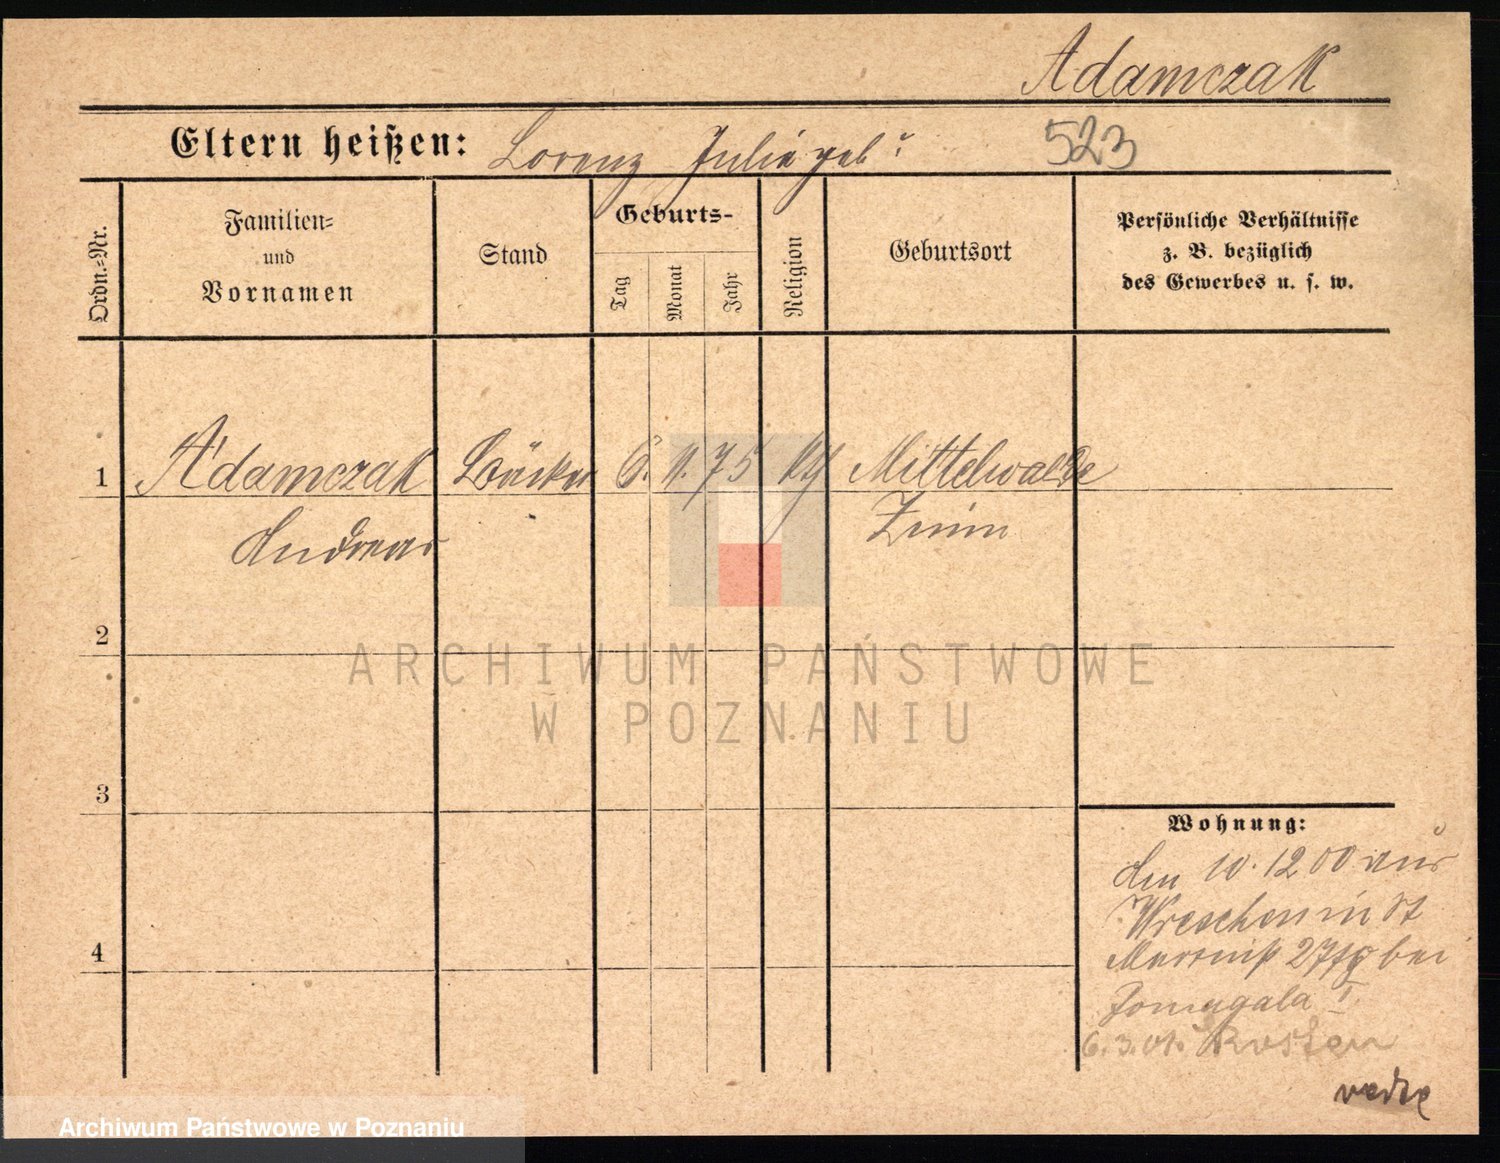 Adamczak
Eltern heißen: Lorenz Julie geb ? 523
Ordn.-Nr.
Familien-
und
Vornamen
Stand
Geburts-
Tag
Monat
Jahr
Religion
Geburtsort
Persönliche Verhältnisse
z. B. bezüglich
des Gewerbes u. s. w.
1 Adamczak Bäcker 6. 11. 75 Mittelwalde
Andreas Znin
2
ARCHIWUM PAŃSTWOWE
W POZNANIU
3
Wohnung:
den 10. 12 00 aus
Wreschen in St
27 bei
4
6. 3. 01.
Archiwum Państwowe w Poznaniu